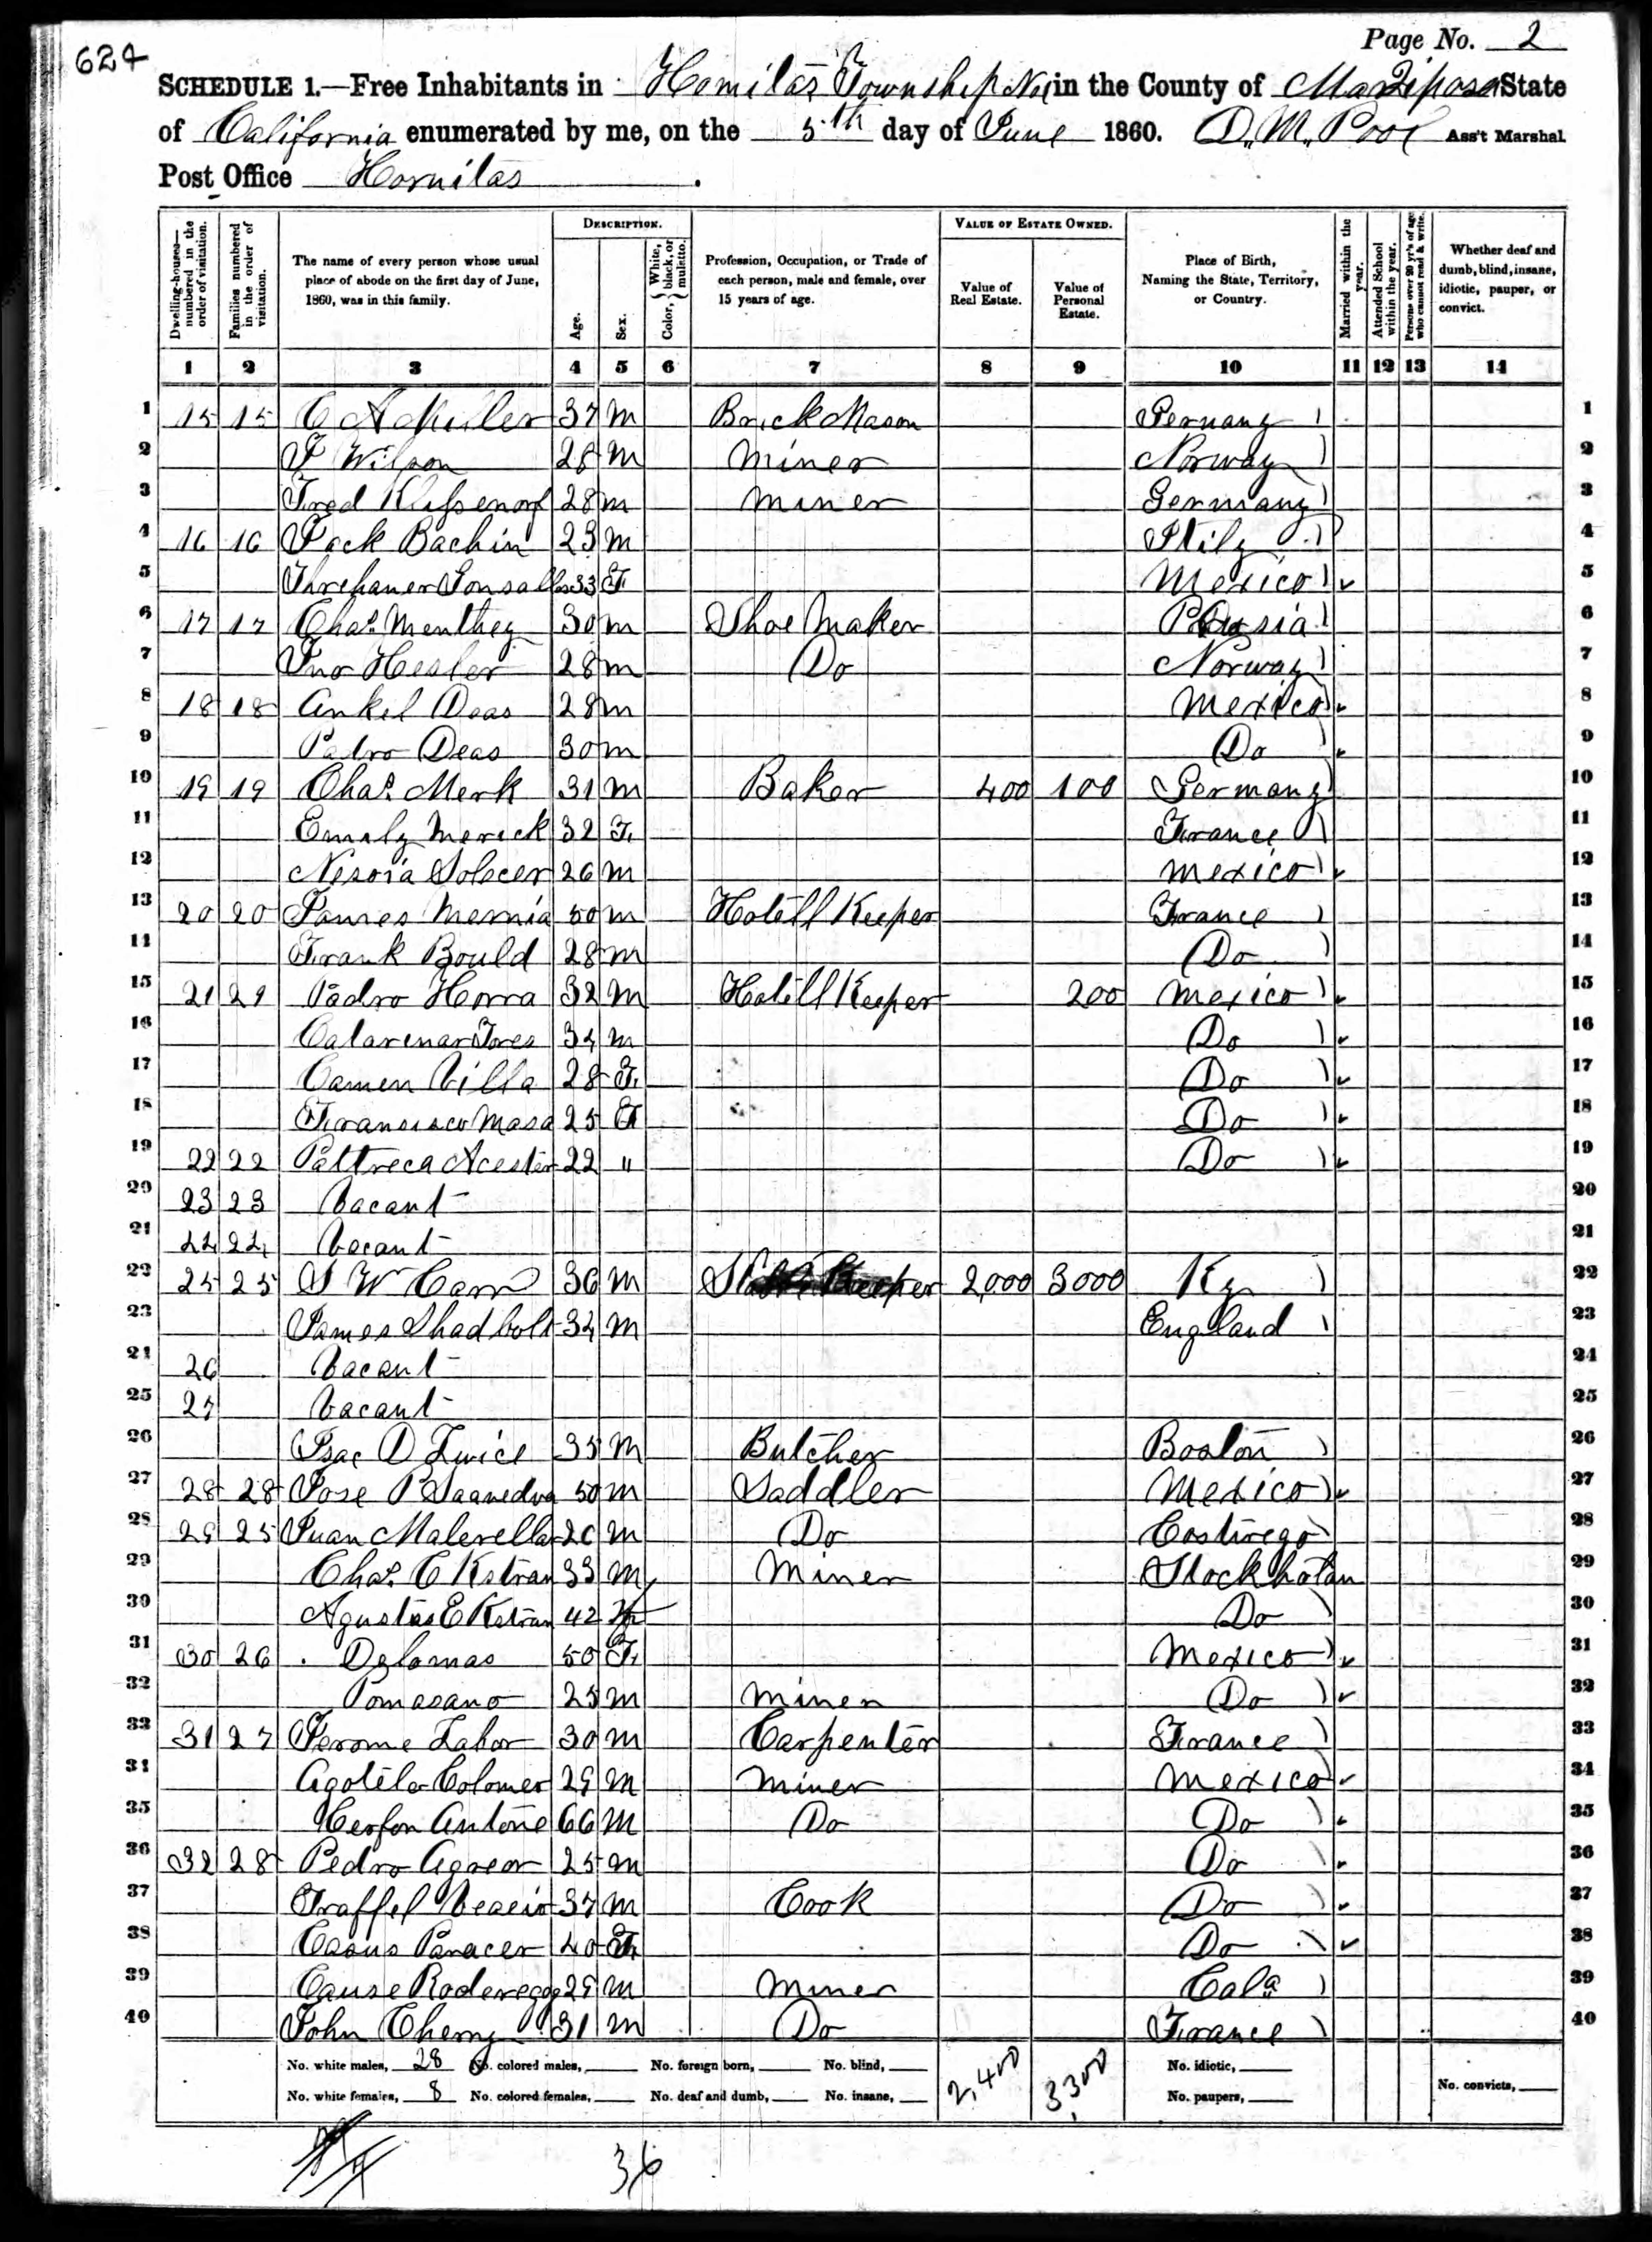 624
Page No. 2
SCHEDULE 1.—Free Inhabitants in Hornitas Township No 1 in the County of Mariposa State
of California enumerated by me, on the 5th day of June 1860. D. M. Pool Ass't Marshal.
Post Office Hornitas.
Dwelling-houses— numbered in the order of visitation.
Families numbered in the order of visitation.
The name of every person whose usual place of abode on the first day of June, 1860, was in this family.
DESCRIPTION.
Age.
Sex.
Color, { White, black, or mulatto.
Profession, Occupation, or Trade of each person, male and female, over 15 years of age.
VALUE OF ESTATE OWNED.
Value of Real Estate.
Value of Personal Estate.
Place of Birth, Naming the State, Territory, or Country.
Married within the year.
Attended School within the year.
Persons over 20 yr's of age who cannot read & write.
Whether deaf and dumb, blind, insane, idiotic, pauper, or convict.
1 2 3 4 5 6 7 8 9 10 11 12 13 14
1 15 15 C A Miller 37 m Brick Mason Germany 1
2 Wilson 28 m Miner Norway 2
3 Fred 28 m miner Germany 3
4 16 16 Jack Bachin 23 m Itily 4
5 33 F Mexico 5
6 17 17 Chas. Menthey 30 m Shoe Maker 6
7 Jno Hesler 28 m Do Norway 7
8 18 18 Ankel Deas 28 m Mexico 8
9 Padro Deas 30 m Do 9
10 19 19 Chas. Merk 31 m Baker 400 100 Germany 10
11 Emaly Merick 32 F France 11
12 26 m Mexico 12
13 20 20 James 50 m Hotell Keeper France 13
14 Frank Bould 28 m Do 14
15 21 21 Padro Horra 32 m Hotell Keeper 200 Mexico 15
16 34 m Do 16
17 Camen Villa 28 F Do 17
18 Fransisco Masa 25 F Do 18
19 22 22 Pattreca 22 " Do 19
20 23 23 Vacant 20
21 24 24 Vacant 21
22 25 25 S W Carr 36 m 2,000 3000 Ky 22
23 James Shadbolt 34 m England 23
24 26 Vacant 24
25 27 Vacant 25
26 Isac D 35 m Butcher Boston 26
27 28 28 Jose P Saavedra 50 m Saddler Mexico 27
28 29 25 Juan 26 m Do 28
29 Chas. C Kstran 33 m Miner Stockholan 29
30 Agustus E Kstran 42 Do 30
31 30 26 Delomas 50 F Mexico 31
32 Pomasano 25 m Miner Do 32
33 31 27 Jerome Labor 30 m Carpenter France 33
34 Agotila Colomer 29 m Miner Mexico 34
35 Antone 66 m Do Do 35
36 32 28 Pedro 25 m Do 36
37 37 m Cook Do 37
38 40 F Do 38
39 29 m Miner Cala 39
40 John Cherry 31 m Do France 40
No. white males, 28 No. colored males, No. foreign born, No. blind, No. idiotic,
No. white females, 8 No. colored females, No. deaf and dumb, No. insane, 2,400 3300 No. paupers, No. convicts,
36